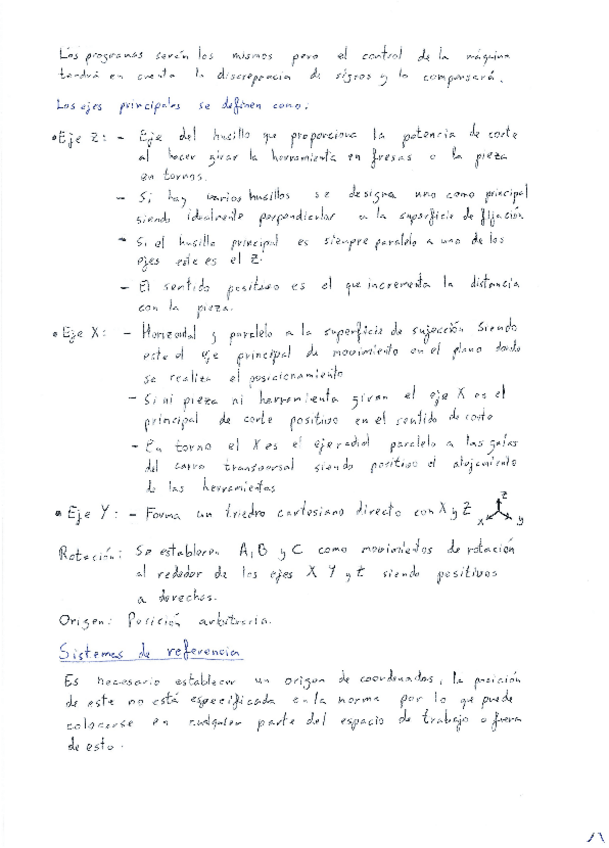 Los programas serán los mismos pero el control de la máquina
tendrá en cuenta la discrepancia de signos y lo compensará.
Los ejes principales se definen como:
• Eje Z: - Eje del husillo que proporciona la potencia de corte
al hacer girar la herramienta en fresas o la pieza
en tornos.
- Si hay varios husillos se designa uno como principal
siendo idealmente perpendicular a la superficie de fijación
- Si el husillo principal es siempre paralelo a uno de los
ejes este es el Z.
- El sentido positivo es el que incrementa la distancia
con la pieza.
• Eje X: - Horizontal y paralelo a la superficie de sujección siendo
este el eje principal de movimiento en el plano donde
se realiza el posicionamiento
- Si ni pieza ni herramienta giran el eje X es el
principal de corte positivo en el sentido de corte
- En torno el X es el eje radial paralelo a las guías
del carro transversal siendo positivo el alejamiento
de las herramientas
• Eje Y: - Forma un triedro cartesiano directo con X y Z
Z
X
y
Rotación: Se establecen A, B y C como movimientos de rotación
al rededor de los ejes X Y y Z siendo positivos
a derechas.
Origen: Posición arbitraria.
Sistemas de referencia
Es necesario establecer un origen de coordenadas, la posición
de este no está especificada en la norma por lo que puede
colocarse en cualquier parte del espacio de trabajo o fuera
de esto.